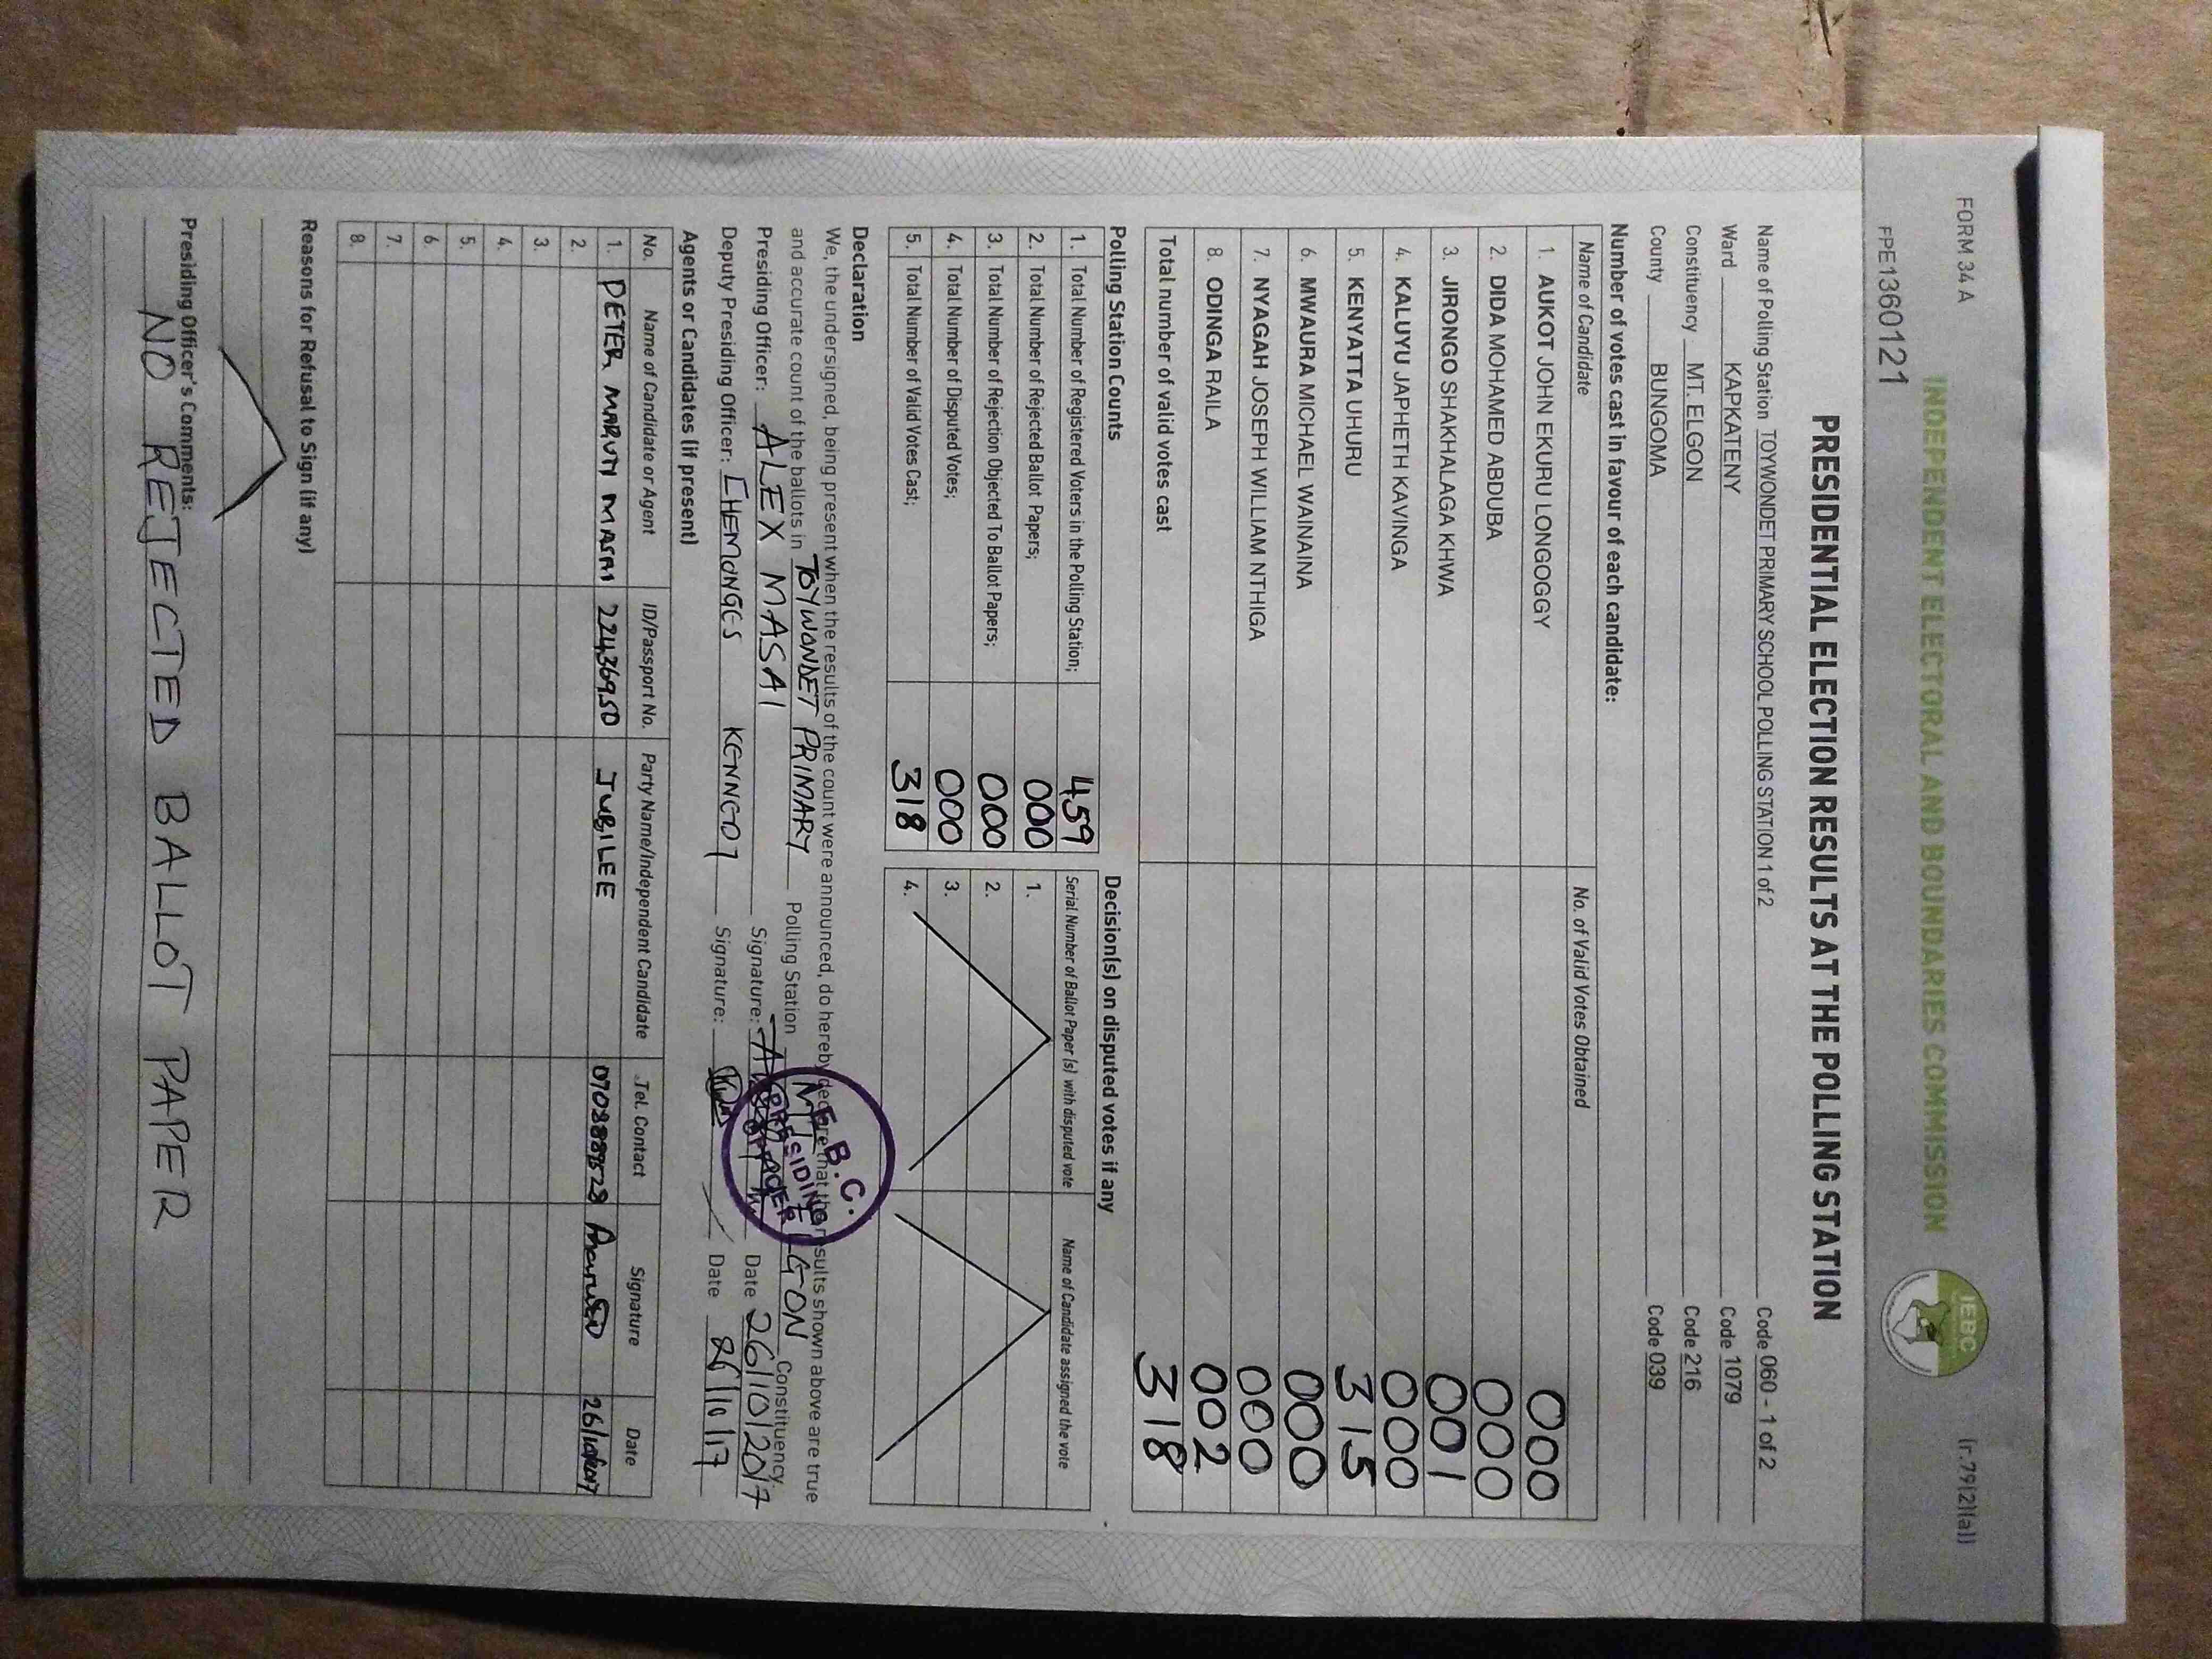 FORM 34 A (r.79(2)(a))
INDEPENDENT ELECTORAL AND BOUNDARIES COMMISSION
IEBC
FPE1360121
PRESIDENTIAL ELECTION RESULTS AT THE POLLING STATION
Name of Polling Station TOYWONDET PRIMARY SCHOOL POLLING STATION 1 of 2 Code 060 - 1 of 2
Ward KAPKATENY Code 1079
Constituency MT. ELGON Code 216
County BUNGOMA Code 039
Number of votes cast in favour of each candidate:
Name of Candidate No. of Valid Votes Obtained
1. AUKOT JOHN EKURU LONGOGGY 000
2. DIDA MOHAMED ABDUBA 000
3. JIRONGO SHAKHALAGA KHWA 001
4. KALUYU JAPHETH KAVINGA 000
5. KENYATTA UHURU 315
6. MWAURA MICHAEL WAINAINA 000
7. NYAGAH JOSEPH WILLIAM NTHIGA 000
8. ODINGA RAILA 002
Total number of valid votes cast 318
Polling Station Counts Decision(s) on disputed votes if any
Serial Number of Ballot Paper (s) with disputed vote Name of Candidate assigned the vote
1. Total Number of Registered Voters in the Polling Station; 459 1.
2. Total Number of Rejected Ballot Papers; 000 2.
3. Total Number of Rejection Objected To Ballot Papers; 000 3.
4. Total Number of Disputed Votes; 000 4.
5. Total Number of Valid Votes Cast; 318
Declaration
We, the undersigned, being present when the results of the count were announced, do hereby declare that the results shown above are true
and accurate count of the ballots in TOYWONDET PRIMARY Polling Station MT ELGON Constituency.
Presiding Officer: ALEX MASAI Signature: Date 26/10/2017
Deputy Presiding Officer: CHEMONGES KENNEDY Signature: Date 26/10/17
PRESIDING
Agents or Candidates (if present)
No. Name of Candidate or Agent ID/Passport No. Party Name/Independent Candidate Tel. Contact Signature Date
1. PETER MARUTI MASAI 22436950 JUBILEE 26/10/2017
2.
3.
4.
5.
6.
7.
8.
Reasons for Refusal to Sign (if any)
Presiding Officer's Comments:
NO REJECTED BALLOT PAPER